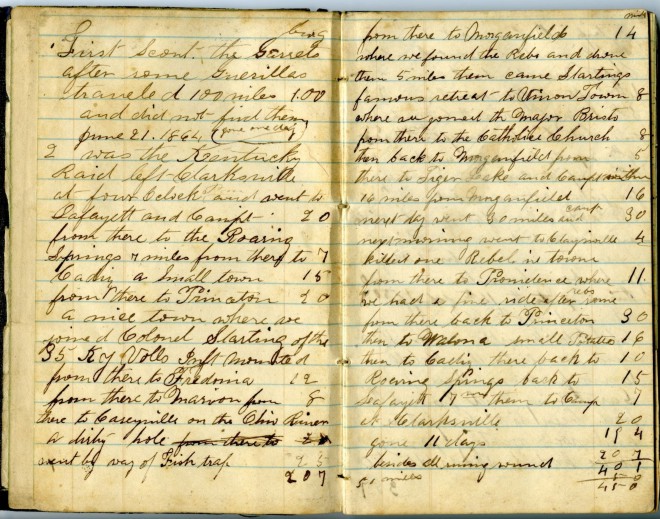 First Scout. the Garrets
after some Guerillas
traveled 100 miles 1.00
and did not find them
June 21. 1864 (gone one day)
2 was the Kentucky
Raid left Clarksville
at four Oclock and went to
Lafayett and Camps 20
from there to the Roaring
Springs 7 miles from there to 7
Cadiz a Small town 15
from there to Princeton 20
a nice town where we
joined Colonel Starling of the
35 Ky Vols Inft mounted
from there to Fredonia 12
from there to Marion from 8
there to Caseyville on the Ohio River
a dirty hole from there to
went by way of Fish trap 25
207
miles
from there to Morganfield 14
where we found the Rebs and drove
them 5 miles then came Starlings
famous retreat to Union Town 8
where we joined the Major Bristo
from there to the Catholic Church 8
then back to Morganfield from 5
there to Tiger Lake and Camp within
16 miles from Morganfield 16
next day went 30 miles and camp 30
next morning went to Claysville 4
killed one Rebel in town
from there to Providence where 11
we had a fine ride after some rebs
from there back to Princeton 30
then to Walona small Place 16
then to Cadiz there back to 10
Roaring Springs back to 15
Lafayett 7 them to Camp 7
at Clarksville 20
gone 11 days 194
besides all runing round 207
401
51 miles 50
450